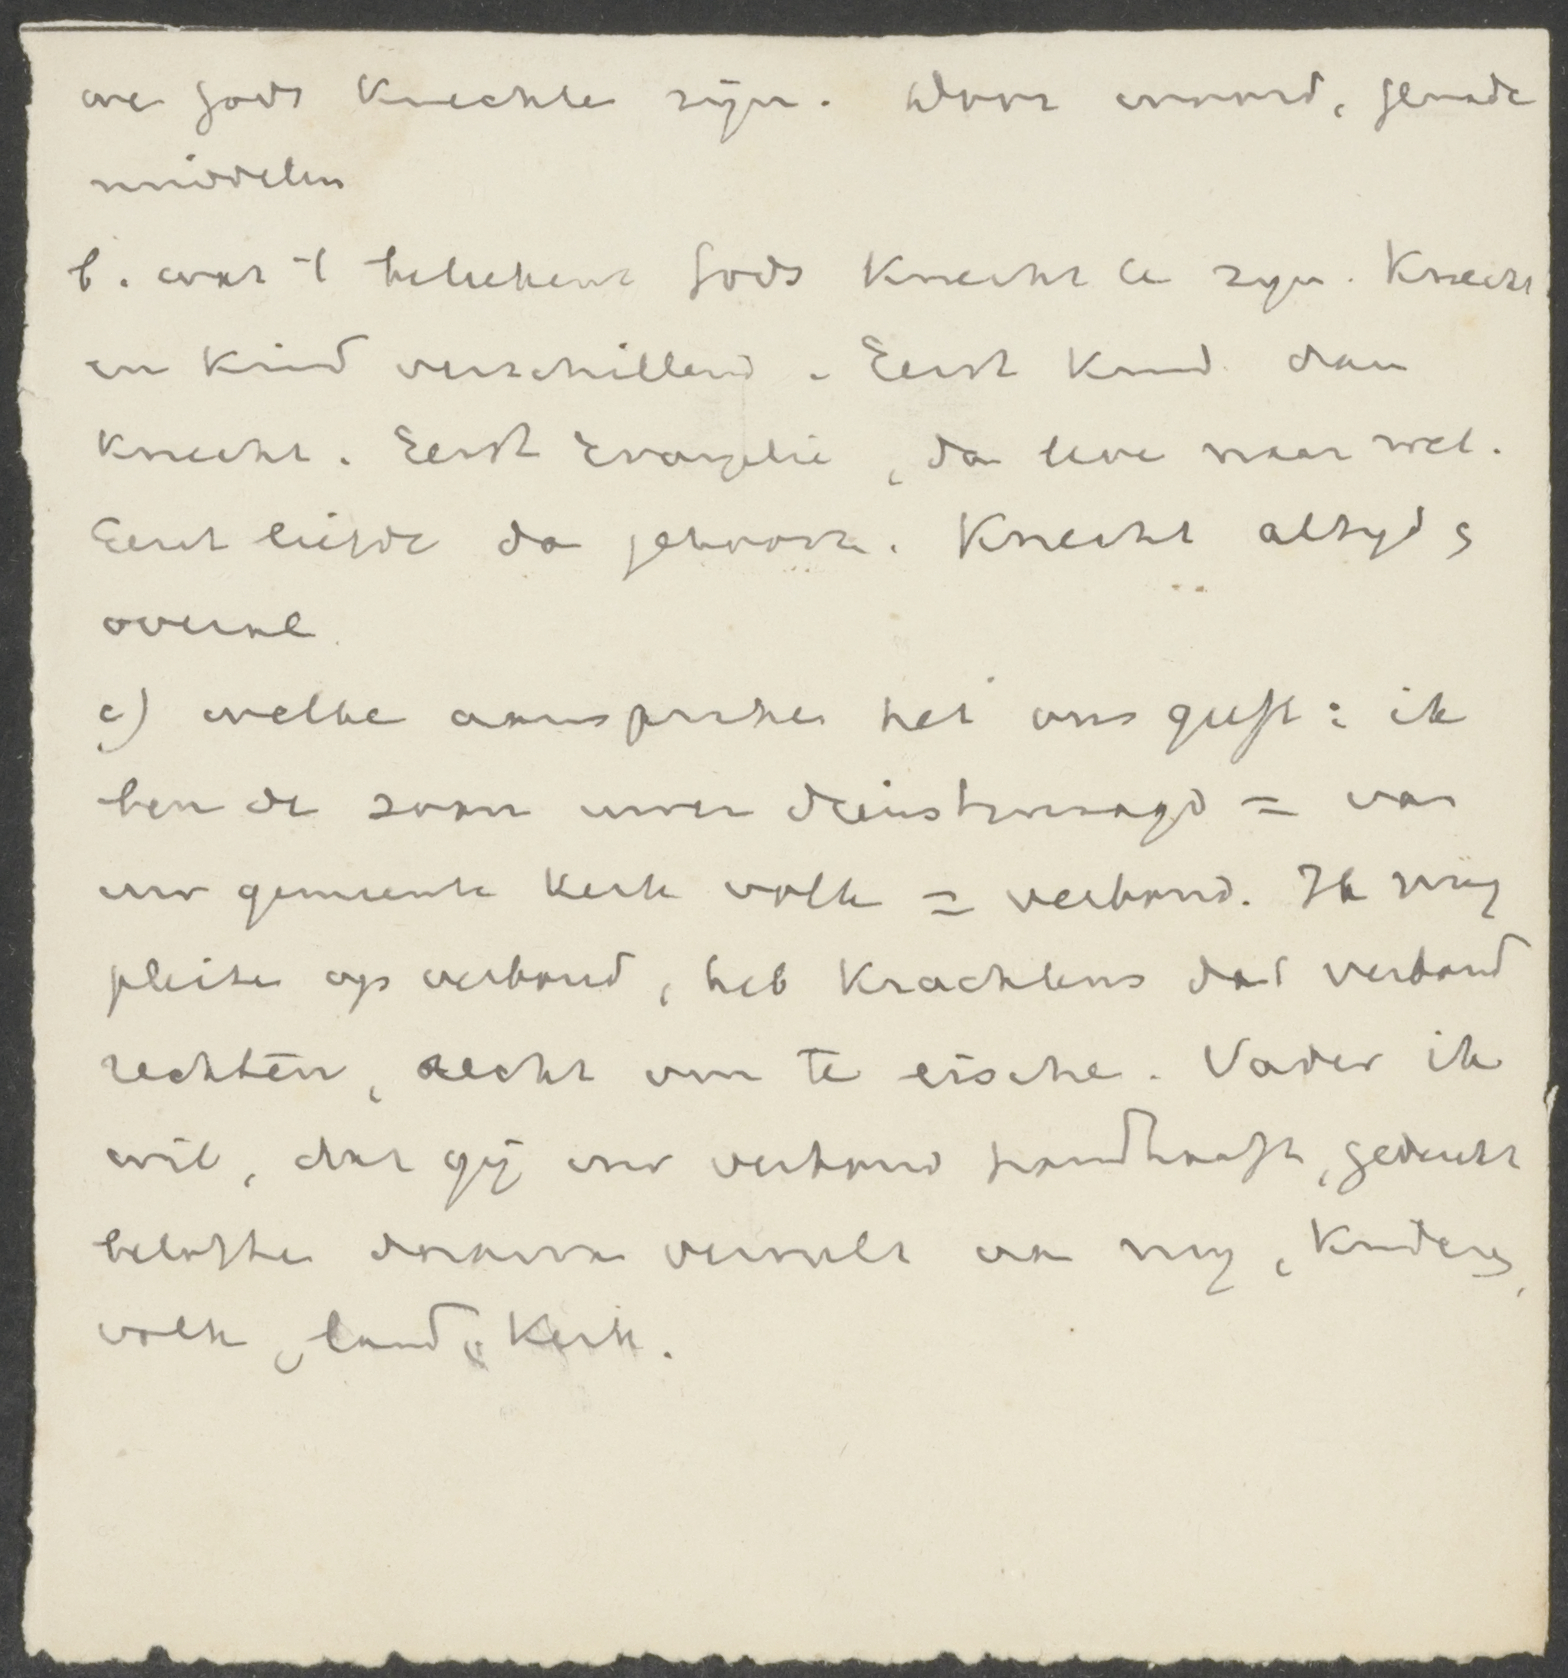 we Gods Knechte zijn. Door woord, genade
middelen
b. wat 't beteekent Gods Knecht te zyn. Knecht
en Kind verschillend. Eerst Kind dan
Knecht. Eerst Evangelie, da leve naar wet.
Eerst liefde da gehoorz. Knecht altyd &
overal
c) welke aanspraken het ons geeft: ik
ben de zoon uwer dienstmaagd = van
uw gemeente Kerk volk = verbond. Ik mag
pleite op verbond, heb Krachtens dat verbond
rechten, recht om te eische. Vader ik
wil, dat gij uw verbond handhaaft, gedenkt
belofte daarvan vervult aan my, Kinderen,
volk, land, Kerk.